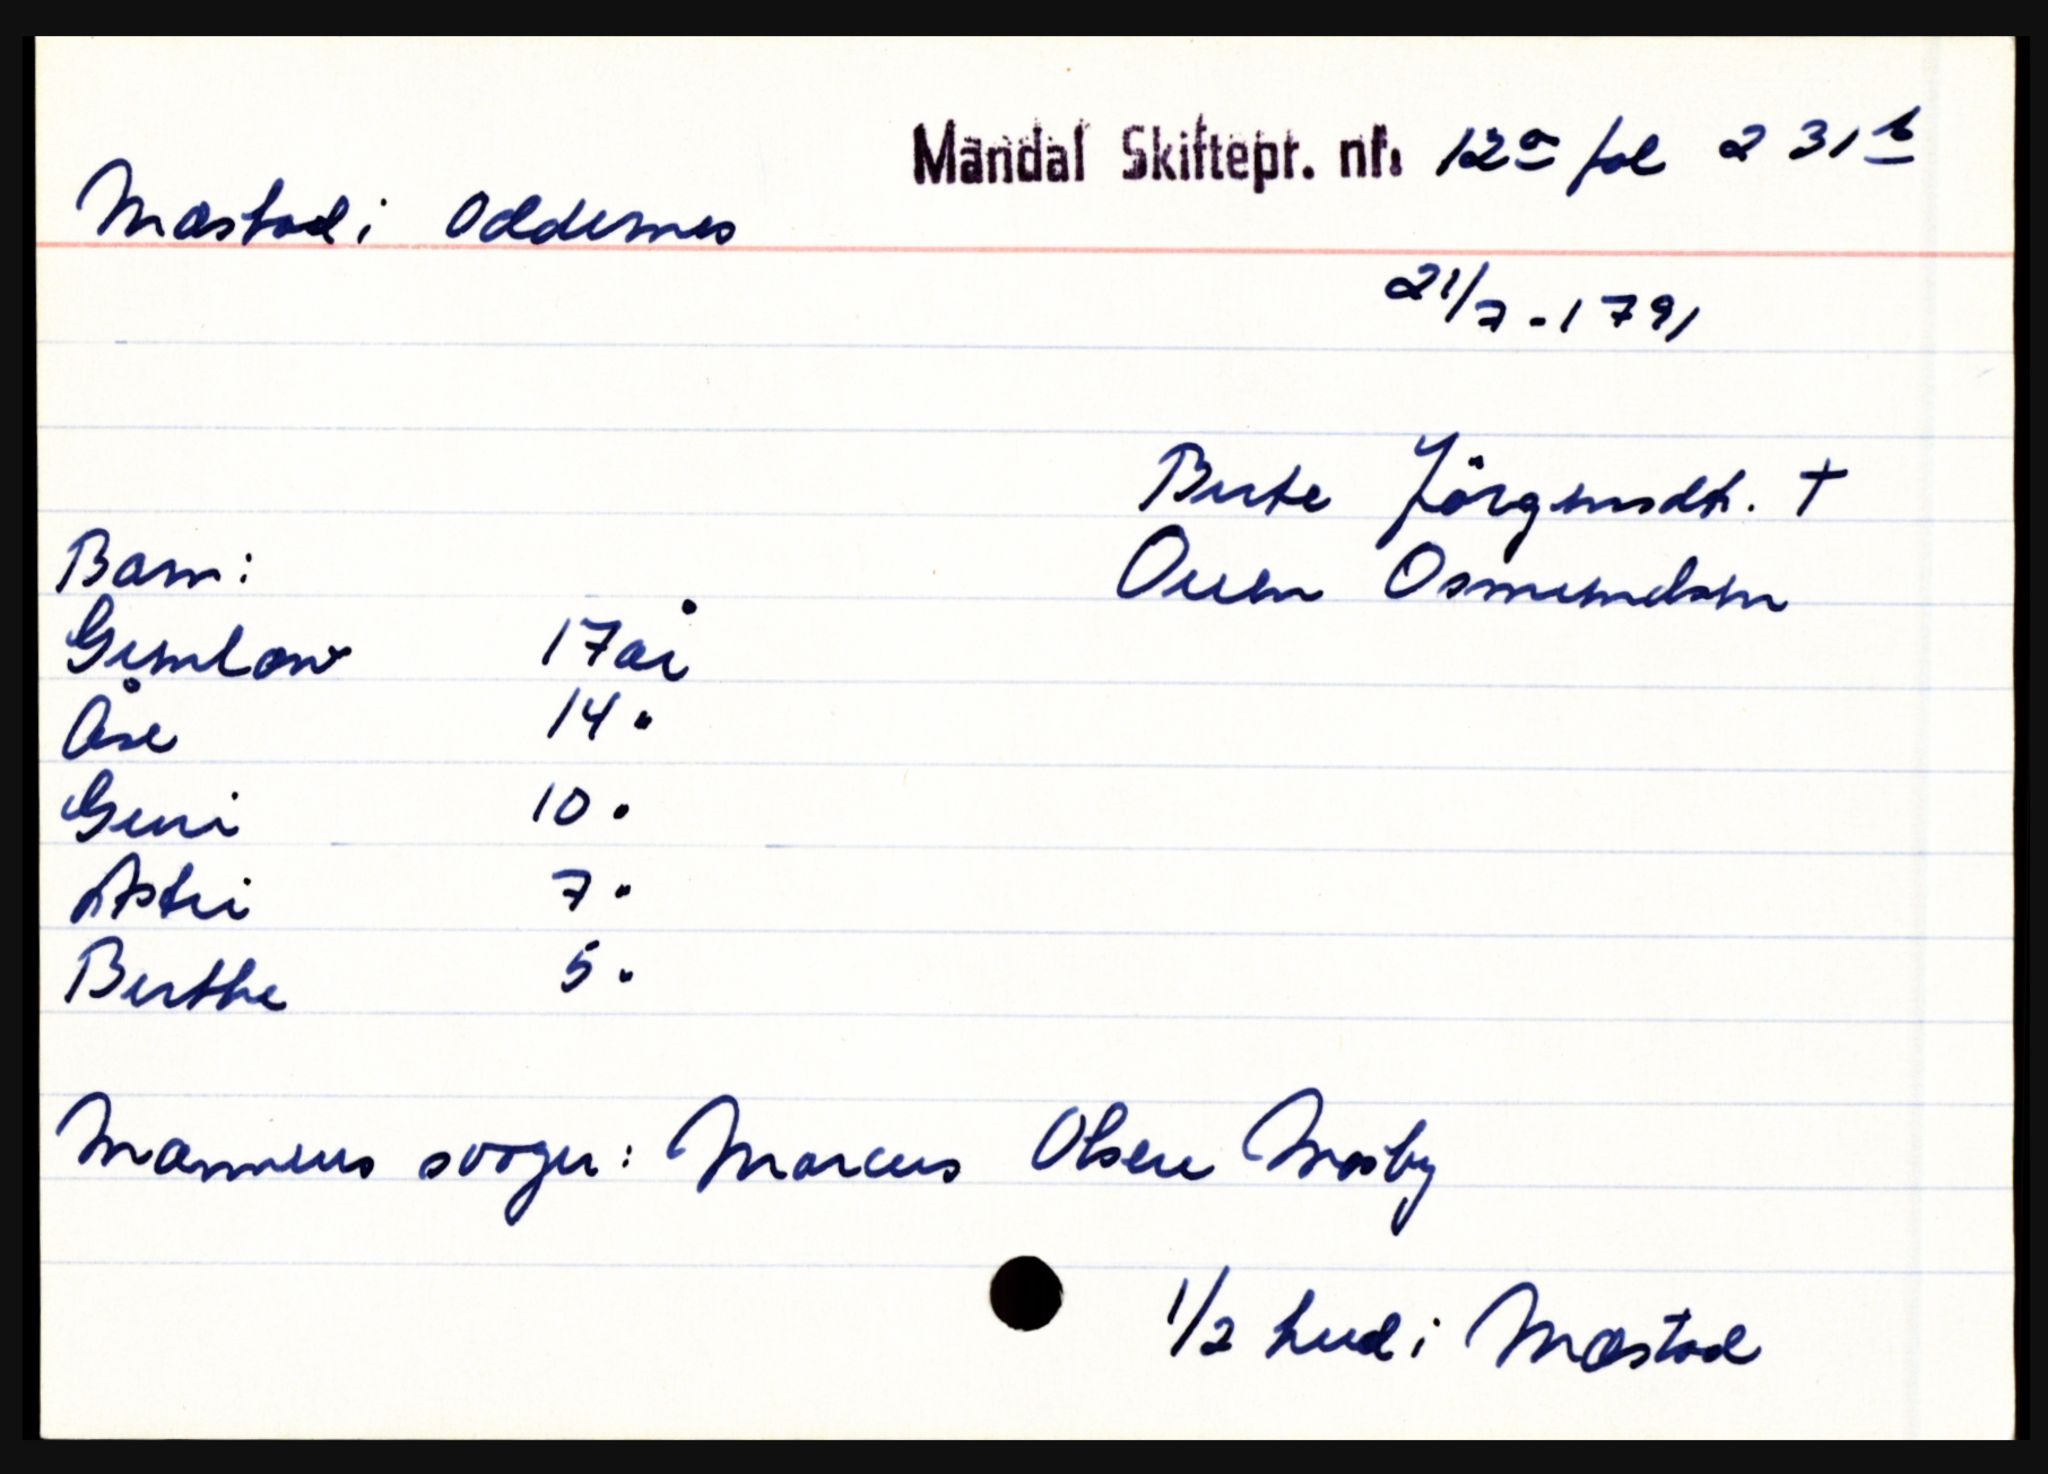 Mandal Skiftepr. nr. 12a fol 231b
Mæstad i Oddernes
21/7-1791
Berte Jörgensdtr. †
Barn:
Ouen Osmundsen
Gunlaw 17 år
Åse 14 "
Guri 10 "
Astri 7 "
Berthe 5 "
Mannens svoger: Marcus Olsen Mosby
1/2 hud i Mæstad